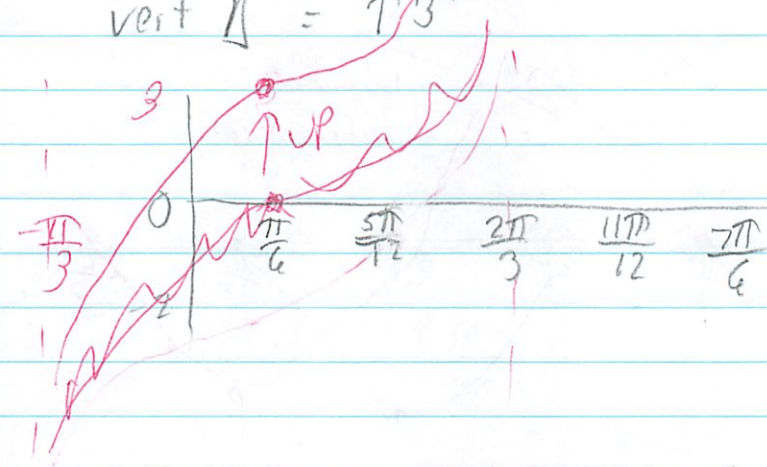 vert Δ = ↑ 3
3
↑ UP
0
-π/3 π/6 5π/12 2π/3 11π/12 7π/6
-2